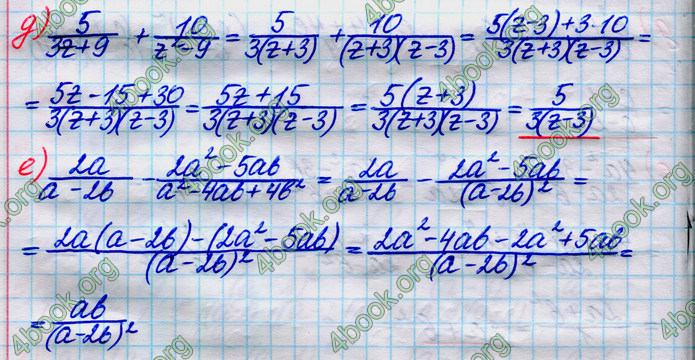 д) 5/(3z+9) + 10/(z²-9) = 5/(3(z+3)) + 10/((z+3)(z-3)) = (5(z-3)+3·10)/(3(z+3)(z-3)) =
= (5z-15+30)/(3(z+3)(z-3)) = (5z+15)/(3(z+3)(z-3)) = (5(z+3))/(3(z+3)(z-3)) = 5/(3(z-3))
е) 2a/(a-2b) - (2a²-5ab)/(a²-4ab+4b²) = 2a/(a-2b) - (2a²-5ab)/((a-2b)²) =
= (2a(a-2b)-(2a²-5ab))/((a-2b)²) = (2a²-4ab-2a²+5ab)/((a-2b)²) =
= ab/((a-2b)²)
4book.org